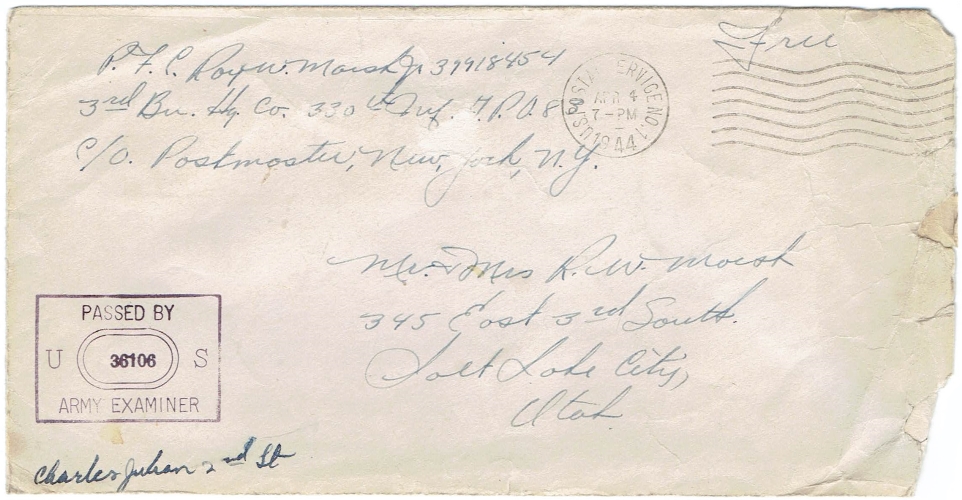 Free
P.F.C. Roy W. Marsh Jr 39918454
3rd Bn. Hq. Co. 330th Inf. A.P.O. 8
c/o. Postmaster, New York, N.Y.
U.S. POSTAL SERVICE NO. 1
APR 4
7-PM
1944
Mr. & Mrs R. W. Marsh
345 East 3rd South.
Salt Lake City,
Utah
PASSED BY
U 36106 S
ARMY EXAMINER
Charles Julian 2nd Lt